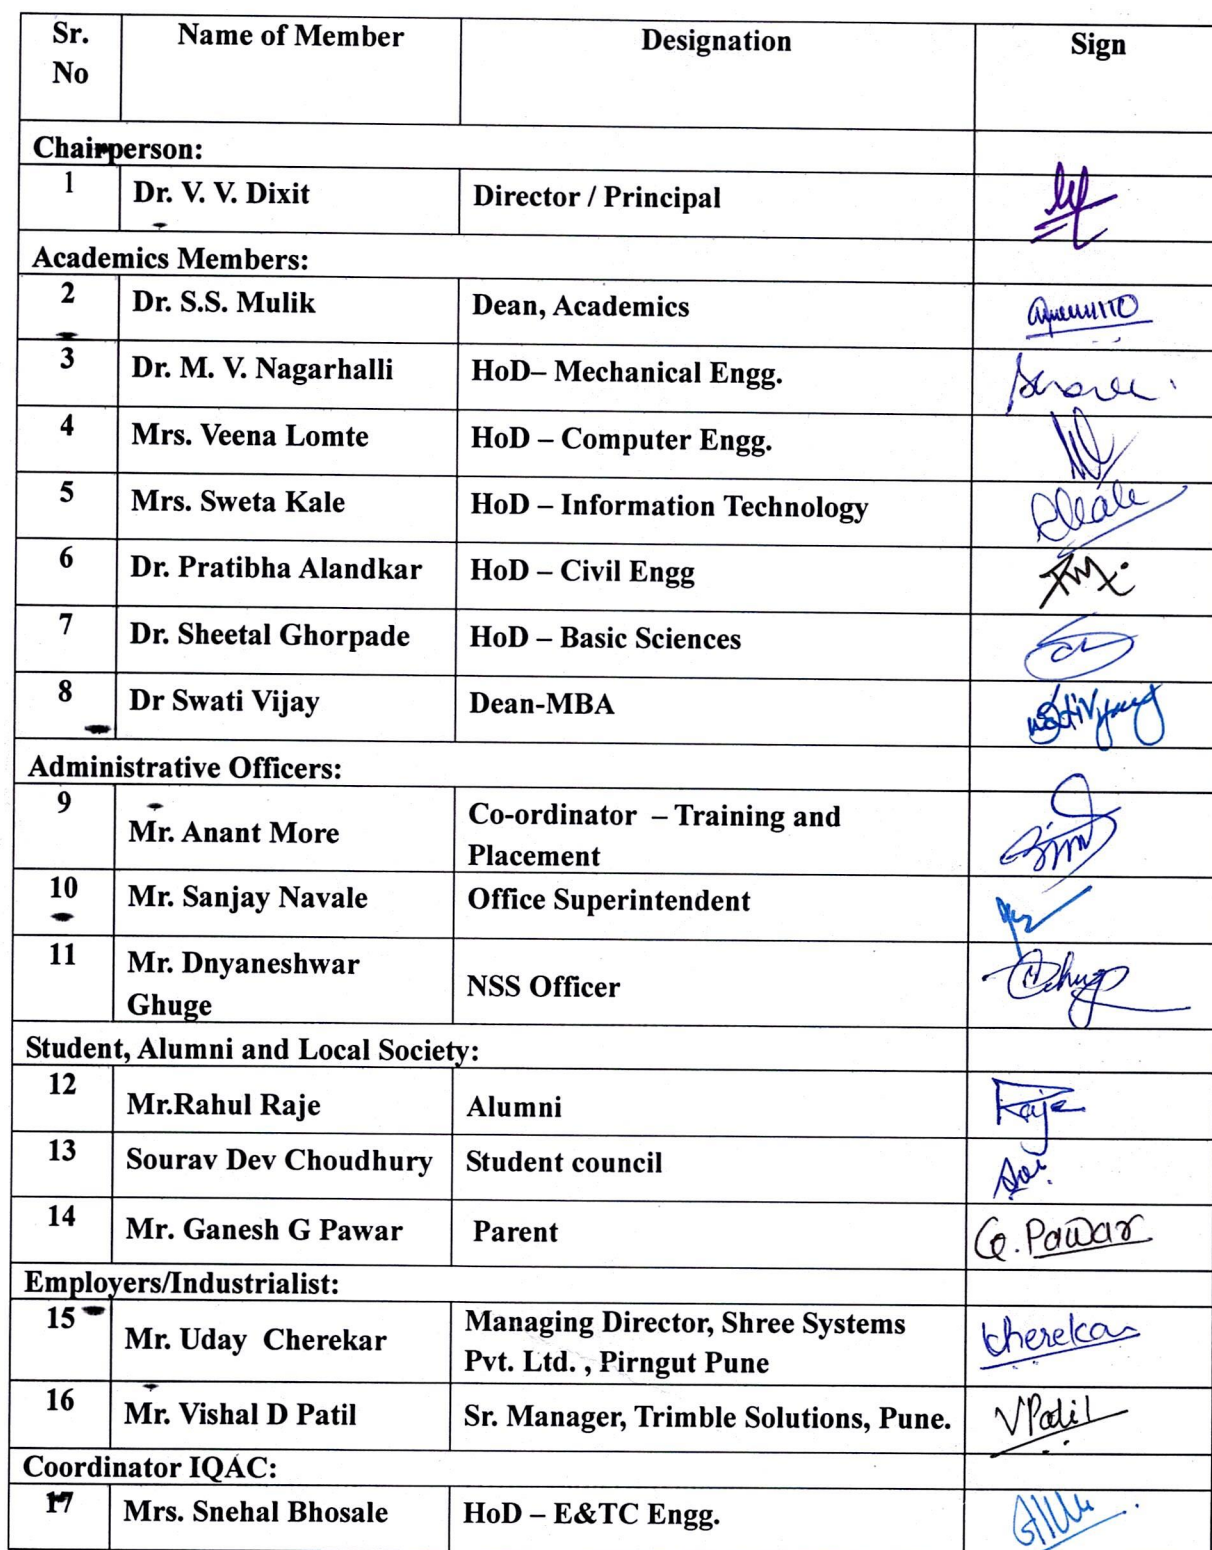 Sr. No Name of Member Designation Sign
Chairperson:
1 Dr. V. V. Dixit Director / Principal
Academics Members:
2 Dr. S.S. Mulik Dean, Academics
3 Dr. M. V. Nagarhalli HoD– Mechanical Engg.
4 Mrs. Veena Lomte HoD – Computer Engg.
5 Mrs. Sweta Kale HoD – Information Technology
6 Dr. Pratibha Alandkar HoD – Civil Engg
7 Dr. Sheetal Ghorpade HoD – Basic Sciences
8 Dr Swati Vijay Dean-MBA
Administrative Officers:
9 Mr. Anant More Co-ordinator – Training and
Placement
10 Mr. Sanjay Navale Office Superintendent
11 Mr. Dnyaneshwar
Ghuge NSS Officer
Student, Alumni and Local Society:
12 Mr.Rahul Raje Alumni Raje
13 Sourav Dev Choudhury Student council
14 Mr. Ganesh G Pawar Parent G. Pawar
Employers/Industrialist:
15 Mr. Uday Cherekar Managing Director, Shree Systems
Pvt. Ltd. , Pirngut Pune
16 Mr. Vishal D Patil Sr. Manager, Trimble Solutions, Pune. VPatil
Coordinator IQAC:
17 Mrs. Snehal Bhosale HoD – E&TC Engg.